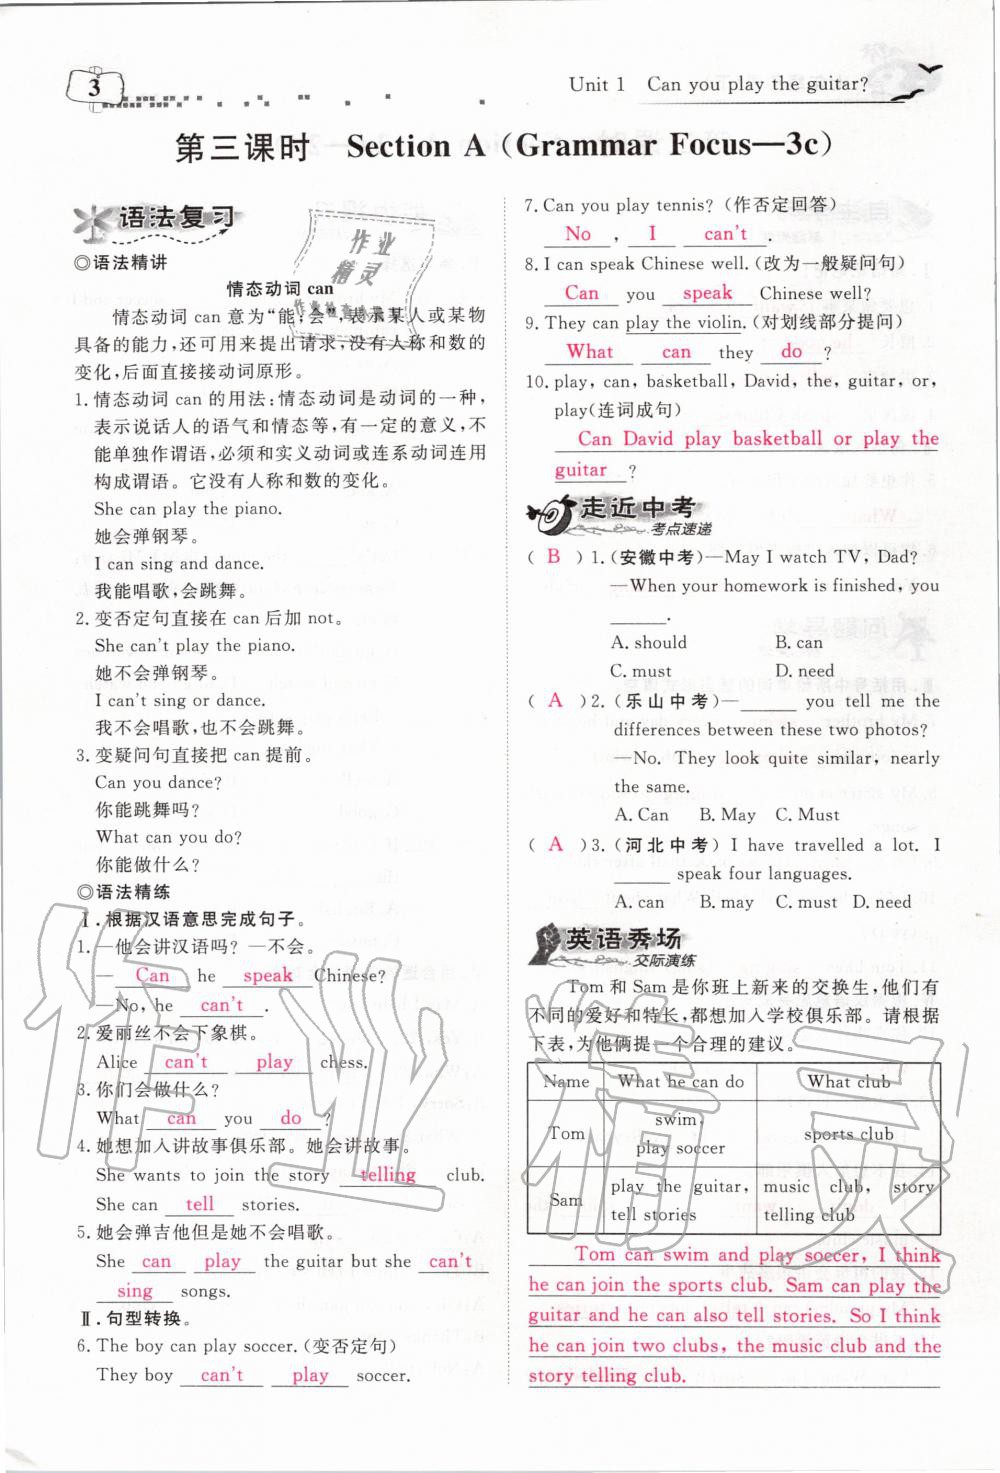 3
Unit 1 Can you play the guitar?
第三课时 Section A (Grammar Focus—3c)
语法复习
◎语法精讲
情态动词 can
情态动词 can 意为“能;会”,表示某人或某物
具备的能力,还可用来提出请求,没有人称和数的
变化,后面直接接动词原形。
1.情态动词 can 的用法:情态动词是动词的一种,
表示说话人的语气和情态等,有一定的意义,不
能单独作谓语,必须和实义动词或连系动词连用
构成谓语。它没有人称和数的变化。
She can play the piano.
她会弹钢琴。
I can sing and dance.
我能唱歌,会跳舞。
2.变否定句直接在 can 后加 not。
She can't play the piano.
她不会弹钢琴。
I can't sing or dance.
我不会唱歌,也不会跳舞。
3.变疑问句直接把 can 提前。
Can you dance?
你能跳舞吗?
What can you do?
你能做什么?
◎语法精练
Ⅰ.根据汉语意思完成句子。
1.—他会讲汉语吗? —不会。
— Can he speak Chinese?
—No, he can't .
2.爱丽丝不会下象棋。
Alice can't play chess.
3.你们会做什么?
What can you do ?
4.她想加入讲故事俱乐部。她会讲故事。
She wants to join the story telling club.
She can tell stories.
5.她会弹吉他但是她不会唱歌。
She can play the guitar but she can't
sing songs.
Ⅱ.句型转换。
6. The boy can play soccer. (变否定句)
They boy can't play soccer.
7. Can you play tennis? (作否定回答)
No , I can't .
8. I can speak Chinese well. (改为一般疑问句)
Can you speak Chinese well?
9. They can play the violin. (对划线部分提问)
What can they do ?
10. play, can, basketball, David, the, guitar, or,
play(连词成句)
Can David play basketball or play the
guitar ?
走近中考
考点速递
( B )1.(安徽中考)—May I watch TV, Dad?
—When your homework is finished, you
______.
A. should B. can
C. must D. need
( A )2.(乐山中考)—______ you tell me the
differences between these two photos?
—No. They look quite similar, nearly
the same.
A. Can B. May C. Must
( A )3.(河北中考) I have travelled a lot. I
______ speak four languages.
A. can B. may C. must D. need
英语秀场
交际演练
Tom 和 Sam 是你班上新来的交换生,他们有
不同的爱好和特长,都想加入学校俱乐部。请根据
下表,为他俩提一个合理的建议。
Name What he can do What club
Tom swim, play soccer sports club
Sam play the guitar, tell stories music club, story telling club
Tom can swim and play soccer, I think
he can join the sports club. Sam can play the
guitar and he can also tell stories. So I think
he can join two clubs, the music club and the
story telling club.
作业
精灵
作业精灵